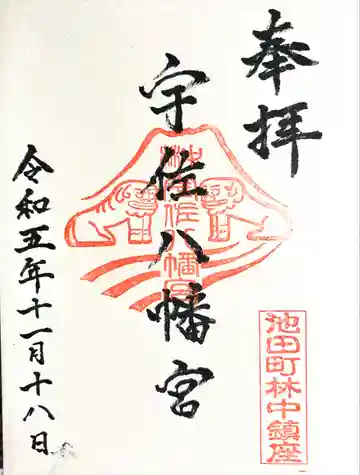 奉拝
宇佐八幡宮
令和五年十一月十八日
池田町林中鎮座